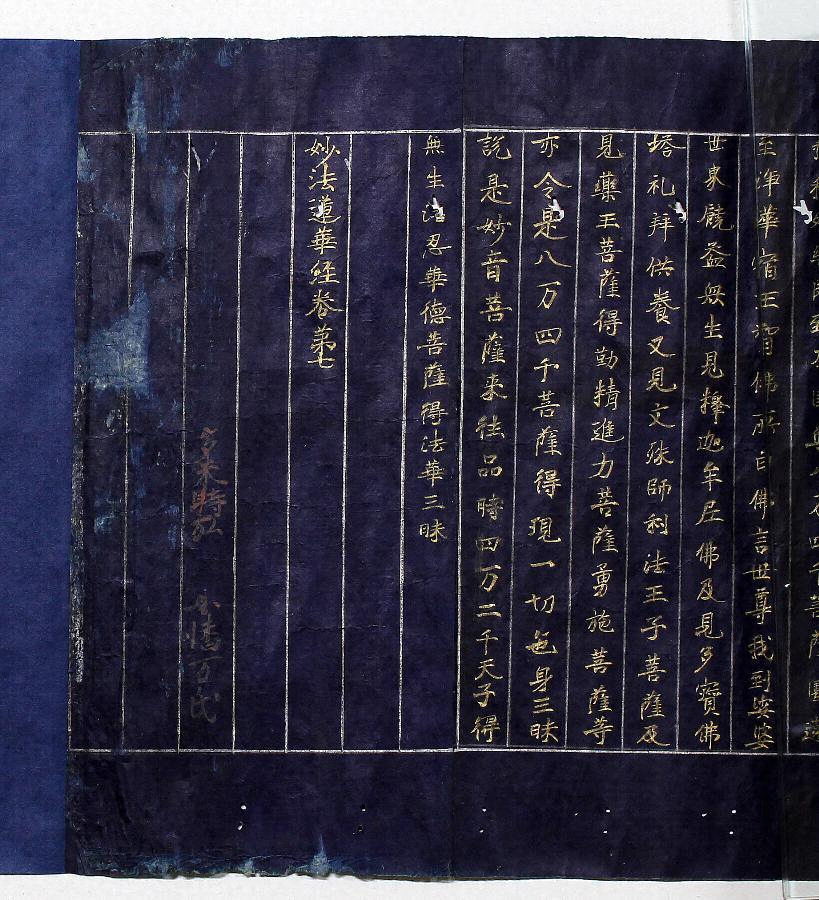 至淨華宿王智佛所白佛言世尊我到娑婆
世界饒益衆生見釋迦牟尼佛及見多寶佛
塔礼拜供養又見文殊師利法王子菩薩及
見藥王菩薩得勤精進力菩薩勇施菩薩等
亦令是八万四千菩薩得現一切色身三昧
說是妙音菩薩来往品時四万二千天子得
無生法忍華德菩薩得法華三昧
妙法蓮華経巻第七